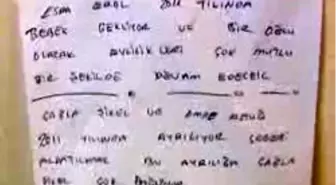 ESRA EROL 2011 YILINDA
BEBEK BEKLİYOR VE BİR OĞLU
OLACAK EVLİLİKLERİ ÇOK MUTLU
BİR ŞEKİLDE DEVAM EDECEK
ÇAĞLA ŞİKEL VE EMRE ALTUĞ
2011 YILINDA AYRILIYOR
ALDATILMAK BU AYRILIĞA ÇAĞLA
ÇOK